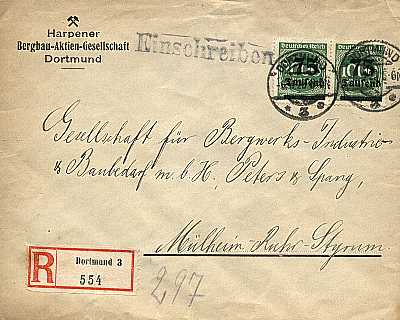 Harpener
Bergbau-Aktien-Gesellschaft
Dortmund
Einschreiben
Deutsches Reich
75
Tausend
Tausend
Gesellschaft für Bergwerks-Industrie
& Baubedarf m.b.H, Peters & Spang,
Mülheim-Ruhr-Styrum
R
Dortmund 3
554
297